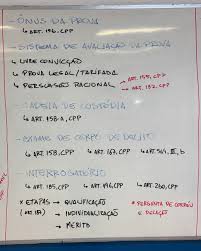 - ÔNUS DA PROVA
↳ ART. 156, CPP
- SISTEMA DE AVALIAÇÃO DA PROVA
↳ LIVRE CONVICÇÃO
↳ PROVA LEGAL/TARIFADA
↳ PERSUASÃO RACIONAL → ART. 155, CPP
→ ART. 182, CPP
- CADEIA DE CUSTÓDIA
↳ ART. 158-A, CPP
- EXAME DE CORPO DE DELITO
↳ ART. 158, CPP ↳ ART. 167, CPP ↳ ART. 564, III, b
- INTERROGATÓRIO
↳ ART. 185, CPP ↳ ART. 196, CPP ↳ ART. 260, CPP
* ETAPAS → QUALIFICAÇÃO
(ART. 187) → INDIVIDUALIZAÇÃO
→ MÉRITO
* PERGUNTA DE CORRÉU
E DELAÇÃO